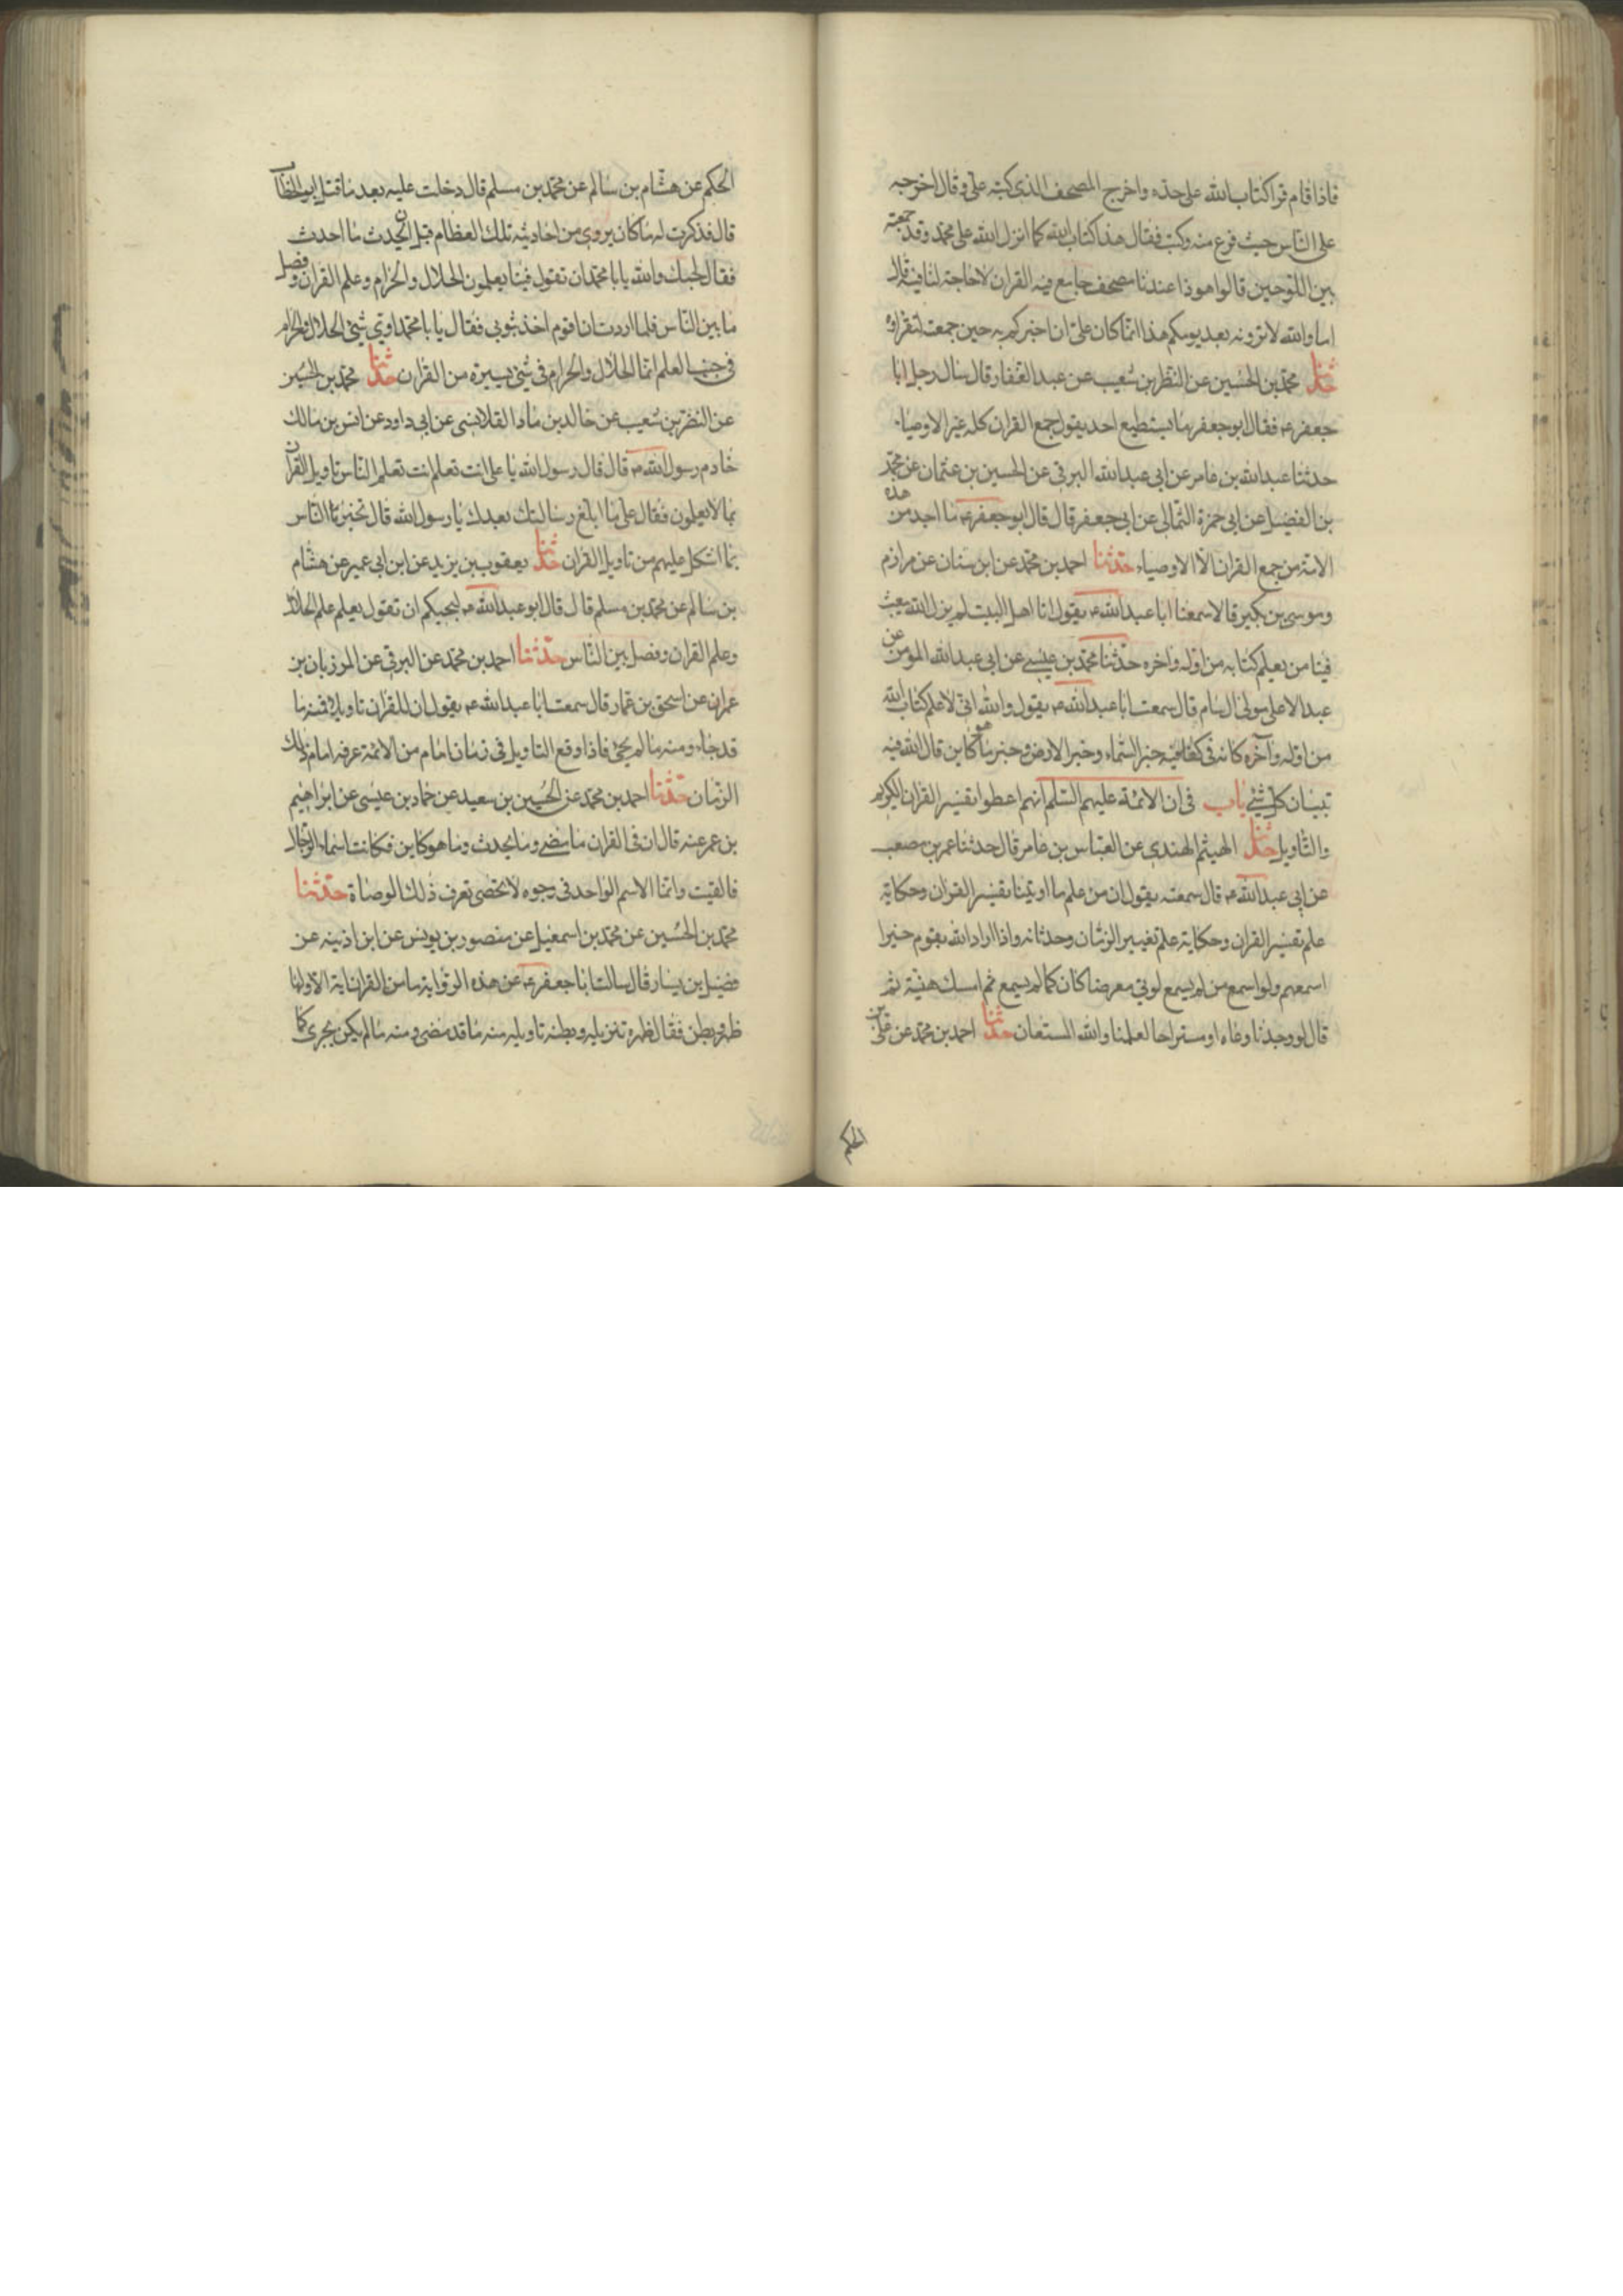 فاذا قام قرا كتاب الله على حده واخرج المصحف الذى كتبه على وقال اخرجه
على الناس حيث فرغ منه وكتب فقال هذا كتاب الله كما انزل الله على محمد وقد جمعته
بين اللوحين قالوا هوذا عندنا مصحف جامع فيه القران لا حاجة لنا فيه قال
اما والله لا ترونه بعد يومكم هذا انما كان على ان اخبركم به حين جمعت لتقراوه
حدثنا محمد بن الحسين عن النظر بن شعيب عن عبد الغفار قال سال رجل ابا
جعفر ع فقال ابو جعفر ما يستطيع احد يقول جمع القران كله غير الاوصياء
حدثنا عبد الله بن عامر عن ابى عبد الله البرقى عن الحسين بن عثمان عن محمد
بن الفضيل عن ابى حمزة الثمالى عن ابى جعفر قال قال ابو جعفر ع ما احد من هذه
الامة من جمع القران الا الاوصياء حدثنا احمد بن محمد عن ابن سنان عن مرازم
وموسى بن بكير قالا سمعنا ابا عبد الله ع يقول انا اهل البيت لم يزل الله يبعث
فينا من يعلم كتابه من اوله واخره حدثنا محمد بن عيسى عن ابى عبد الله المومن عن
عبد الاعلى مولى ال سام قال سمعت ابا عبد الله ع يقول والله انى لاعلم كتاب الله
من اوله وآخره كانه فى كفى فيه خبر السماء وخبر الارض وخبر ما هو كاين قال الله فيه
تبيان كل شئ باب فى ان الائمة عليهم السلم انهم اعطوا تفسير القران الكريم
والتاويل حدثنا الهيثم الهندى عن العباس بن عامر قال حدثنا عمر بن مصعب
عن ابى عبد الله ع قال سمعته يقول ان من علم ما اوتينا تفسير القران وحكاية
علم تفسير القران وحكاية علم تغيير الزمان وحدثانه واذا اراد الله بقوم خيرا
اسمعهم ولو اسمع من لم يسمع لولى معرضا كان كما لم يسمع ثم امسك هنيئة ثم
قال لو وجدنا وعاء او مستراحا لعلمنا والله المستعان حدثنا احمد بن محمد عن على بن
الحكم
الحكم عن هشام بن سالم عن محمد بن مسلم قال دخلت عليه بعد ما قتل ابو الخطاب
قال فذكرت له ما كان يروى من احاديثه تلك العظام قبل ان يحدث ما احدث
فقال لحسبك والله يا با محمد ان تقول فينا يعلمون الحلال والحرام وعلم القران وفصل
ما بين الناس فلما اردت ان اقوم اخذ بثوبى فقال يا با محمد اوي شئ الحلال والحرام
فى جنب العلم انما الحلال والحرام فى شئ يسيره من القران حدثنا محمد بن الحسين
عن النضر بن شعيب عن خالد بن ماد القلانسى عن ابى داود عن انس بن مالك
خادم رسول الله ص قال قال رسول الله يا على انت تعلم انت تعلم الناس تاويل القران
بما لا يعلمون فقال على ما ابلغ رسالتك بعدك يا رسول الله قال تخبر ثنا الناس
بما اشكل عليهم من تاويل القران حدثنا يعقوب بن يزيد عن ابن ابى عمير عن هشام
بن سالم عن محمد بن مسلم قال قال ابو عبد الله ع لحسبكم ان تقول يعلم علم الحلال
وعلم القران وفصل بين الناس حدثنا احمد بن محمد عن البرقى عن المرزبان بن
عمران عن اسحق بن عمار قال سمعت ابا عبد الله ع يقول ان للقران تاويلا فمنه ما
قد جاء ومنه ما لم يجئ فاذا وقع التاويل فى زمان امام من الائمة عرفه امام ذلك
الزمان حدثنا احمد بن محمد عن الحسين بن سعيد عن حماد بن عيسى عن ابراهيم
بن عمر عنه قال ان فى القران ما مضى وما يحدث وما هو كاين فكانت اسماء الرجال
فالقيت وانما الاسم الواحد فى وجوه لا تحصى تعرف ذلك الوصاة حدثنا
محمد بن الحسين عن محمد بن اسمعيل عن منصور بن يونس عن ابن اذينه عن
فضيل بن يسار قال سالت ابا جعفر ع عن هذه الرواية ما من القران اية الا ولها
ظهر وبطن فقال ظهره تنزيله وبطنه تاويله منه ما قد مضى ومنه ما لم يكن يجرى كما